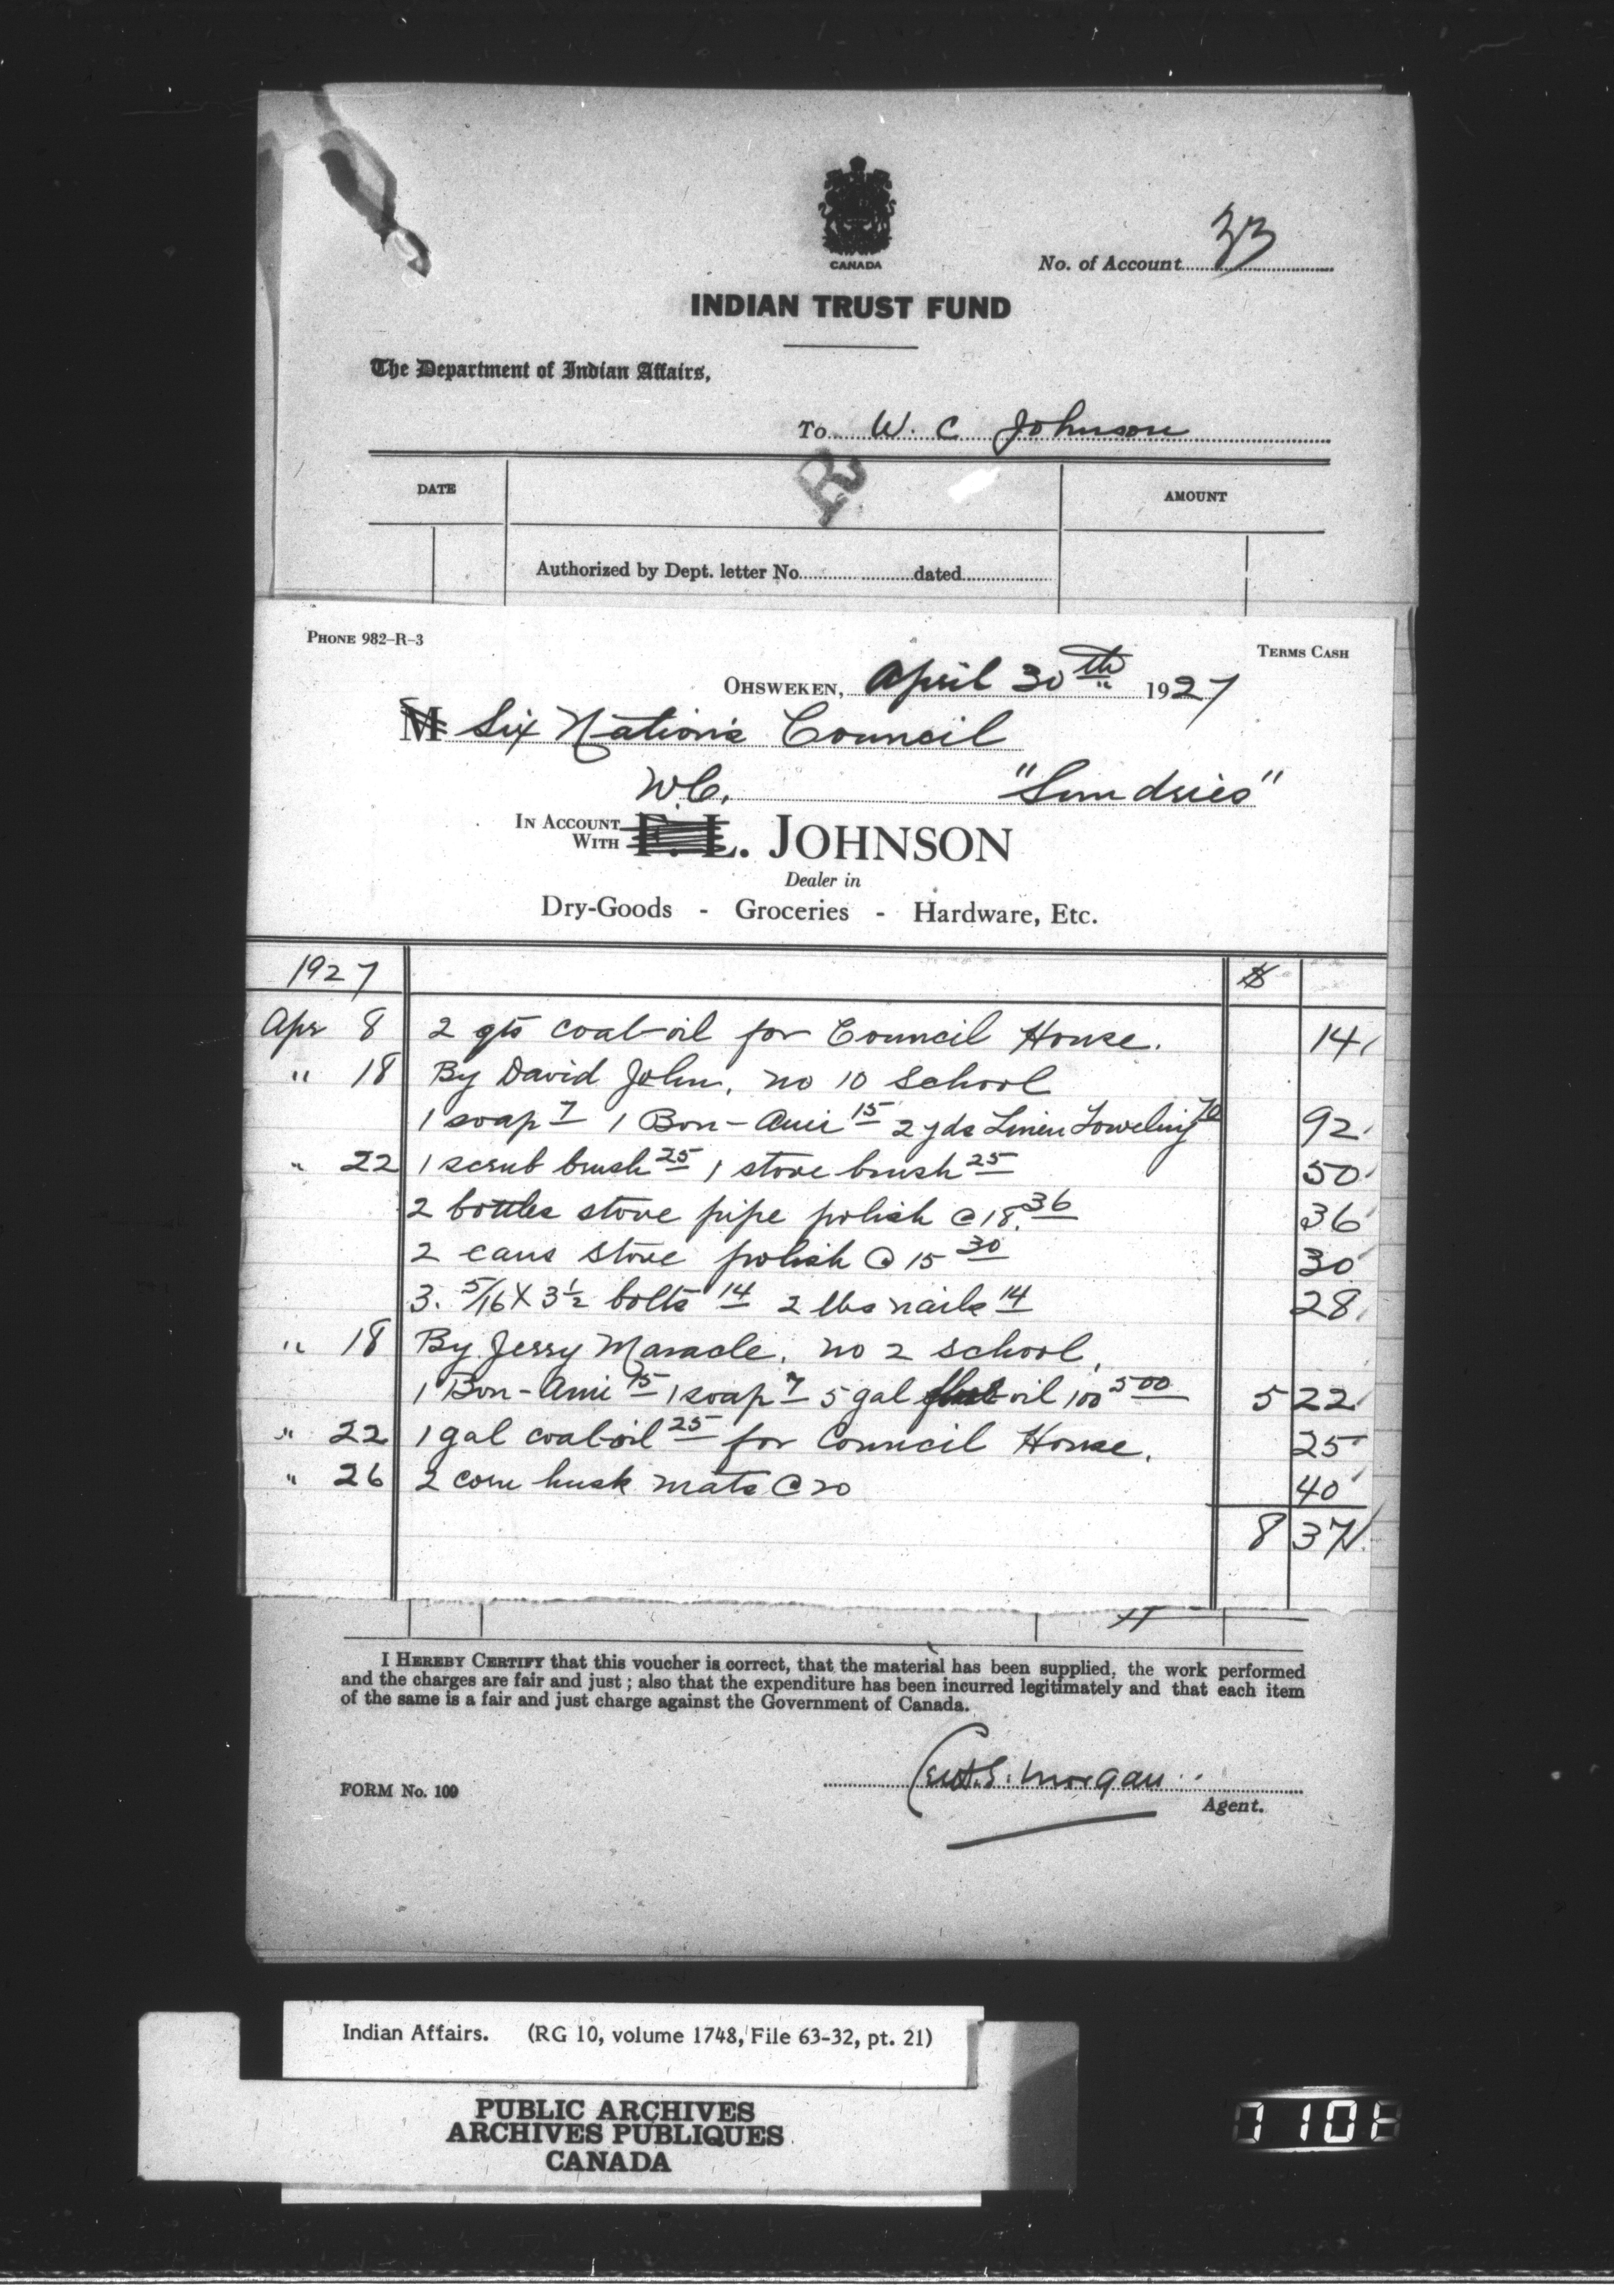 CANADA
No. of Account 33
INDIAN TRUST FUND
The Department of Indian Affairs,
To W. C Johnson
R
DATE AMOUNT
Authorized by Dept. letter No. dated
PHONE 982-R-3 TERMS CASH
OHSWEKEN, April 30th 1927
M Six Nation's Council
W.C. "Sundries"
IN ACCOUNT WITH F. L. JOHNSON
Dealer in
Dry-Goods - Groceries - Hardware, Etc.
1927 $
Apr 8 2 qts coal-oil for Council House. 14
" 18 By David John, no 10 School
1 soap 7 1 Bon-Ami 15 2 yds Linen Toweling 70 92
" 22 1 scrub brush 25 1 stove brush 25 50
2 bottles stove pipe polish @ 18. 36 36
2 cans stove polish @ 15 30 30
3. 5/16 X 3 1/2 bolts 14 2 lbs nails 14 28
" 18 By Jerry Maracle, no 2 school,
1 Bon-Ami 15 1 soap 7 5 gal oil 100 5 00 5 22
" 22 1 gal coal-oil 25 for Council House. 25
" 26 2 corn husk mats @ 20 40
8 37
I HEREBY CERTIFY that this voucher is correct, that the material has been supplied, the work performed
and the charges are fair and just; also that the expenditure has been incurred legitimately and that each item
of the same is a fair and just charge against the Government of Canada.
Morgan
FORM No. 109 Agent.
Indian Affairs. (RG 10, volume 1748, File 63-32, pt. 21)
PUBLIC ARCHIVES
ARCHIVES PUBLIQUES
CANADA